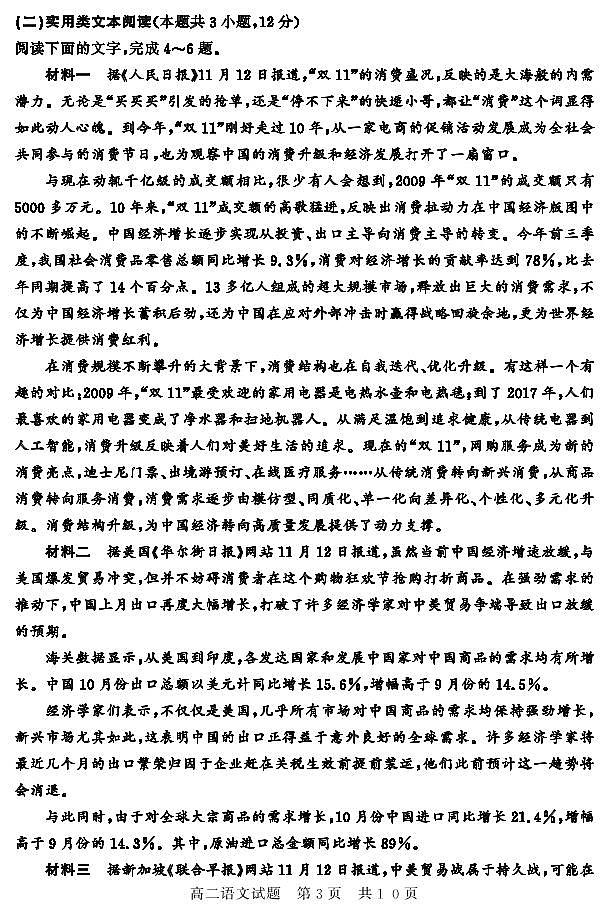 (二)实用类文本阅读(本题共3小题,12分)
阅读下面的文字,完成4～6题。
材料一　据《人民日报》11月12日报道,“双11”的消费盛况,反映的是大海般的内需
潜力。无论是“买买买”引发的抢单,还是“停不下来”的快递小哥,都让“消费”这个词显得
如此动人心魄。到今年,“双11”刚好走过10年,从一家电商的促销活动发展成为全社会
共同参与的消费节日,也为观察中国的消费升级和经济发展打开了一扇窗口。
与现在动辄千亿级的成交额相比,很少有人会想到,2009年“双11”的成交额只有
5000多万元。10年来,“双11”成交额的高歌猛进,反映出消费拉动力在中国经济版图中
的不断崛起。中国经济增长逐步实现从投资、出口主导向消费主导的转变。今年前三季
度,我国社会消费品零售总额同比增长9.3%,消费对经济增长的贡献率达到78%,比去
年同期提高了14个百分点。13多亿人组成的超大规模市场,释放出巨大的消费需求,不
仅为中国经济增长蓄积后劲,还为中国在应对外部冲击时赢得战略回旋余地,更为世界经
济增长提供消费红利。
在消费规模不断攀升的大背景下,消费结构也在自我迭代、优化升级。有这样一个有
趣的对比:2009年,“双11”最受欢迎的家用电器是电热水壶和电热毯;到了2017年,人们
最喜欢的家用电器变成了净水器和扫地机器人。从满足温饱到追求健康,从传统电器到
人工智能,消费升级反映着人们对美好生活的追求。现在的“双11”,网购服务成为新的
消费亮点,迪士尼门票、出境游预订、在线医疗服务……从传统消费转向新兴消费,从商品
消费转向服务消费,消费需求逐步由模仿型、同质化、单一化向差异化、个性化、多元化升
级。消费结构升级,为中国经济转向高质量发展提供了动力支撑。
材料二　据美国《华尔街日报》网站11月12日报道,虽然当前中国经济增速放缓,与
美国爆发贸易冲突,但并不妨碍消费者在这个购物狂欢节抢购打折商品。在强劲需求的
推动下,中国上月出口再度大幅增长,打破了许多经济学家对中美贸易争端导致出口放缓
的预期。
海关数据显示,从美国到印度,各发达国家和发展中国家对中国商品的需求均有所增
长。中国10月份出口总额以美元计同比增长15.6%,增幅高于9月份的14.5%。
经济学家们表示,不仅仅是美国,几乎所有市场对中国商品的需求均保持强劲增长,
新兴市场尤其如此,这表明中国的出口正得益于意外良好的全球需求。许多经济学家将
最近几个月的出口繁荣归因于企业赶在关税生效前提前装运,他们此前预计这一趋势将
会消退。
与此同时,由于对全球大宗商品的需求增长,10月份中国进口同比增长21.4%,增幅
高于9月份的14.3%。其中,原油进口总金额同比增长89%。
材料三　据新加坡《联合早报》网站11月12日报道,中美贸易战属于持久战,可能在
高二语文试题　第3页　共10页